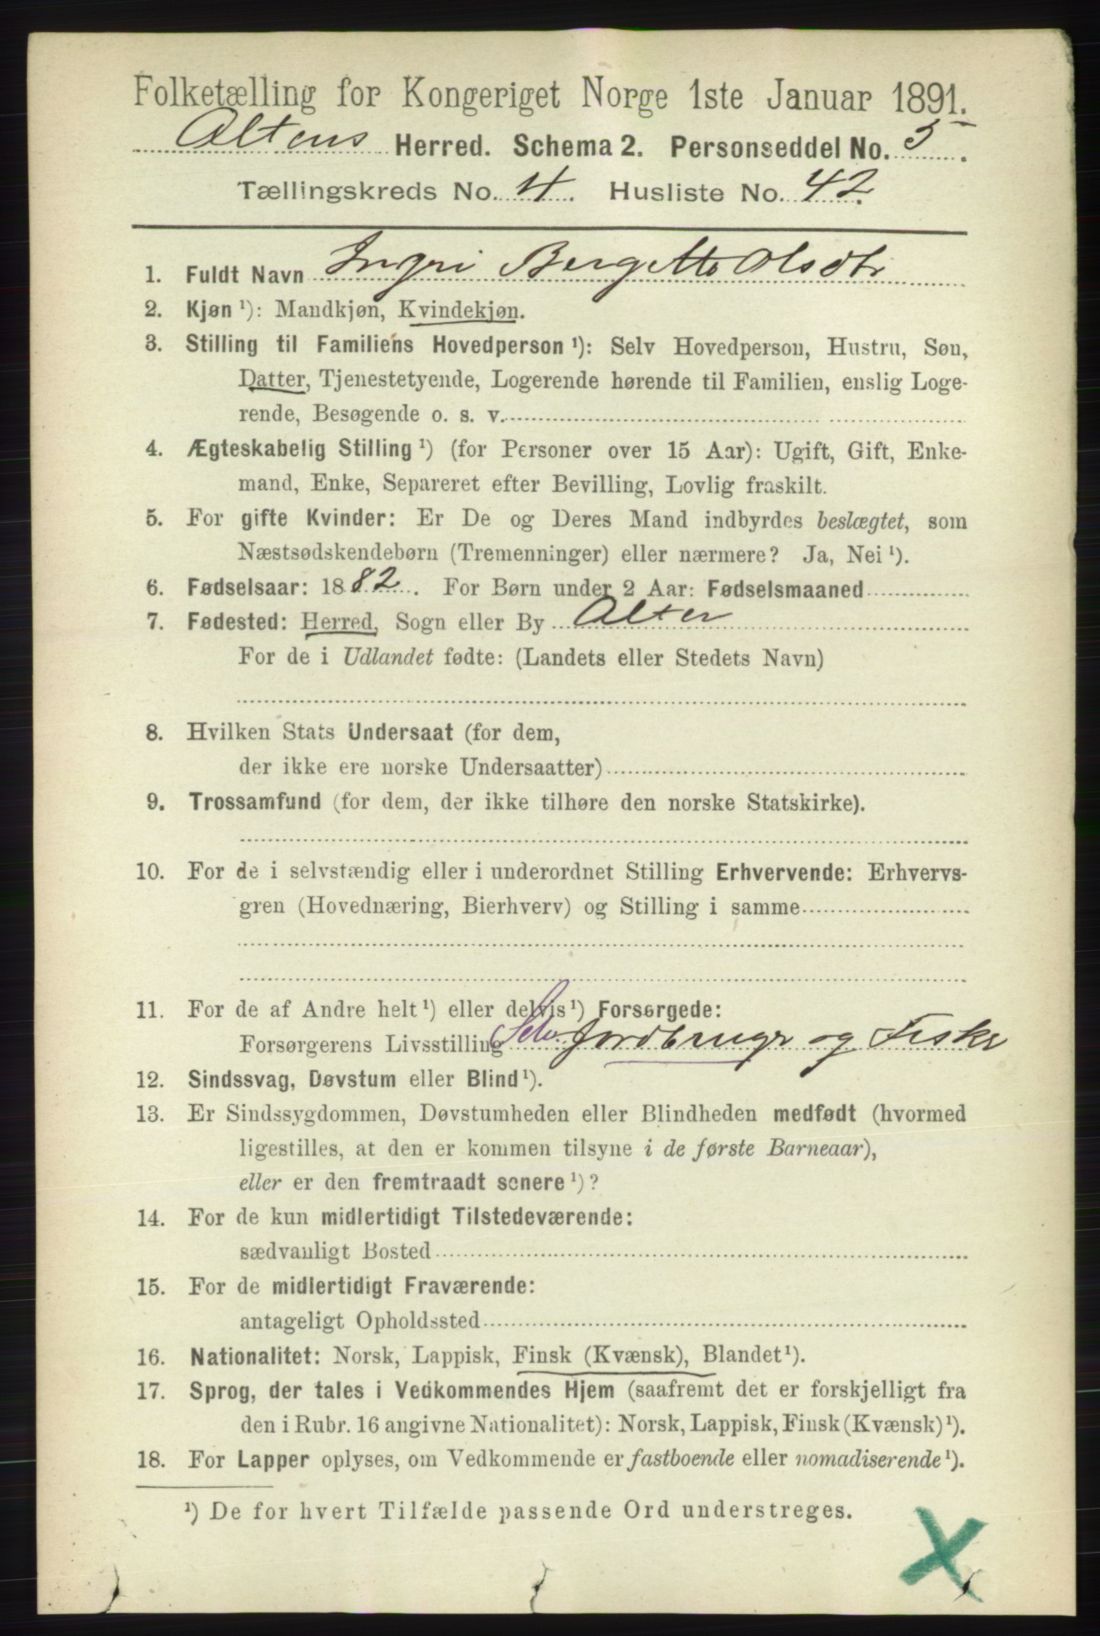 Folketælling for Kongeriget Norge 1ste Januar 1891.
Altens Herred. Schema 2. Personseddel No. 5.
Tællingskreds No. 4. Husliste No. 42.
1. Fuldt Navn Ingri Bergitte Olsdtr
2. Kjøn ¹): Mandkjøn, Kvindekjøn.
3. Stilling til Familiens Hovedperson ¹): Selv Hovedperson, Hustru, Søn,
Datter, Tjenestetyende, Logerende hørende til Familien, enslig Loge-
rende, Besøgende o. s. v.
4. Ægteskabelig Stilling ¹) (for Personer over 15 Aar): Ugift, Gift, Enke-
mand, Enke, Separeret efter Bevilling, Lovlig fraskilt.
5. For gifte Kvinder: Er De og Deres Mand indbyrdes beslægtet, som
Næstsødskendebørn (Tremenninger) eller nærmere? Ja, Nei ¹).
6. Fødselsaar: 1882. For Børn under 2 Aar: Fødselsmaaned
7. Fødested: Herred, Sogn eller By Alten
For de i Udlandet fødte: (Landets eller Stedets Navn)
8. Hvilken Stats Undersaat (for dem,
der ikke ere norske Undersaatter)
9. Trossamfund (for dem, der ikke tilhøre den norske Statskirke).
10. For de i selvstændig eller i underordnet Stilling Erhvervende: Erhvervs-
gren (Hovednæring, Bierhverv) og Stilling i samme
11. For de af Andre helt ¹) eller delvis ¹) Forsørgede:
Forsørgerens Livsstilling Selv. Jordbruger og Fisker
12. Sindssvag, Døvstum eller Blind ¹).
13. Er Sindssygdommen, Døvstumheden eller Blindheden medfødt (hvormed
ligestilles, at den er kommen tilsyne i de første Barneaar),
eller er den fremtraadt senere ¹)?
14. For de kun midlertidigt Tilstedeværende:
sædvanligt Bosted
15. For de midlertidigt Fraværende:
antageligt Opholdssted
16. Nationalitet: Norsk, Lappisk, Finsk (Kvænsk), Blandet ¹).
17. Sprog, der tales i Vedkommendes Hjem (saafremt det er forskjelligt fra
den i Rubr. 16 angivne Nationalitet): Norsk, Lappisk, Finsk (Kvænsk) ¹).
18. For Lapper oplyses, om Vedkommende er fastboende eller nomadiserende ¹).
¹) De for hvert Tilfælde passende Ord understreges.